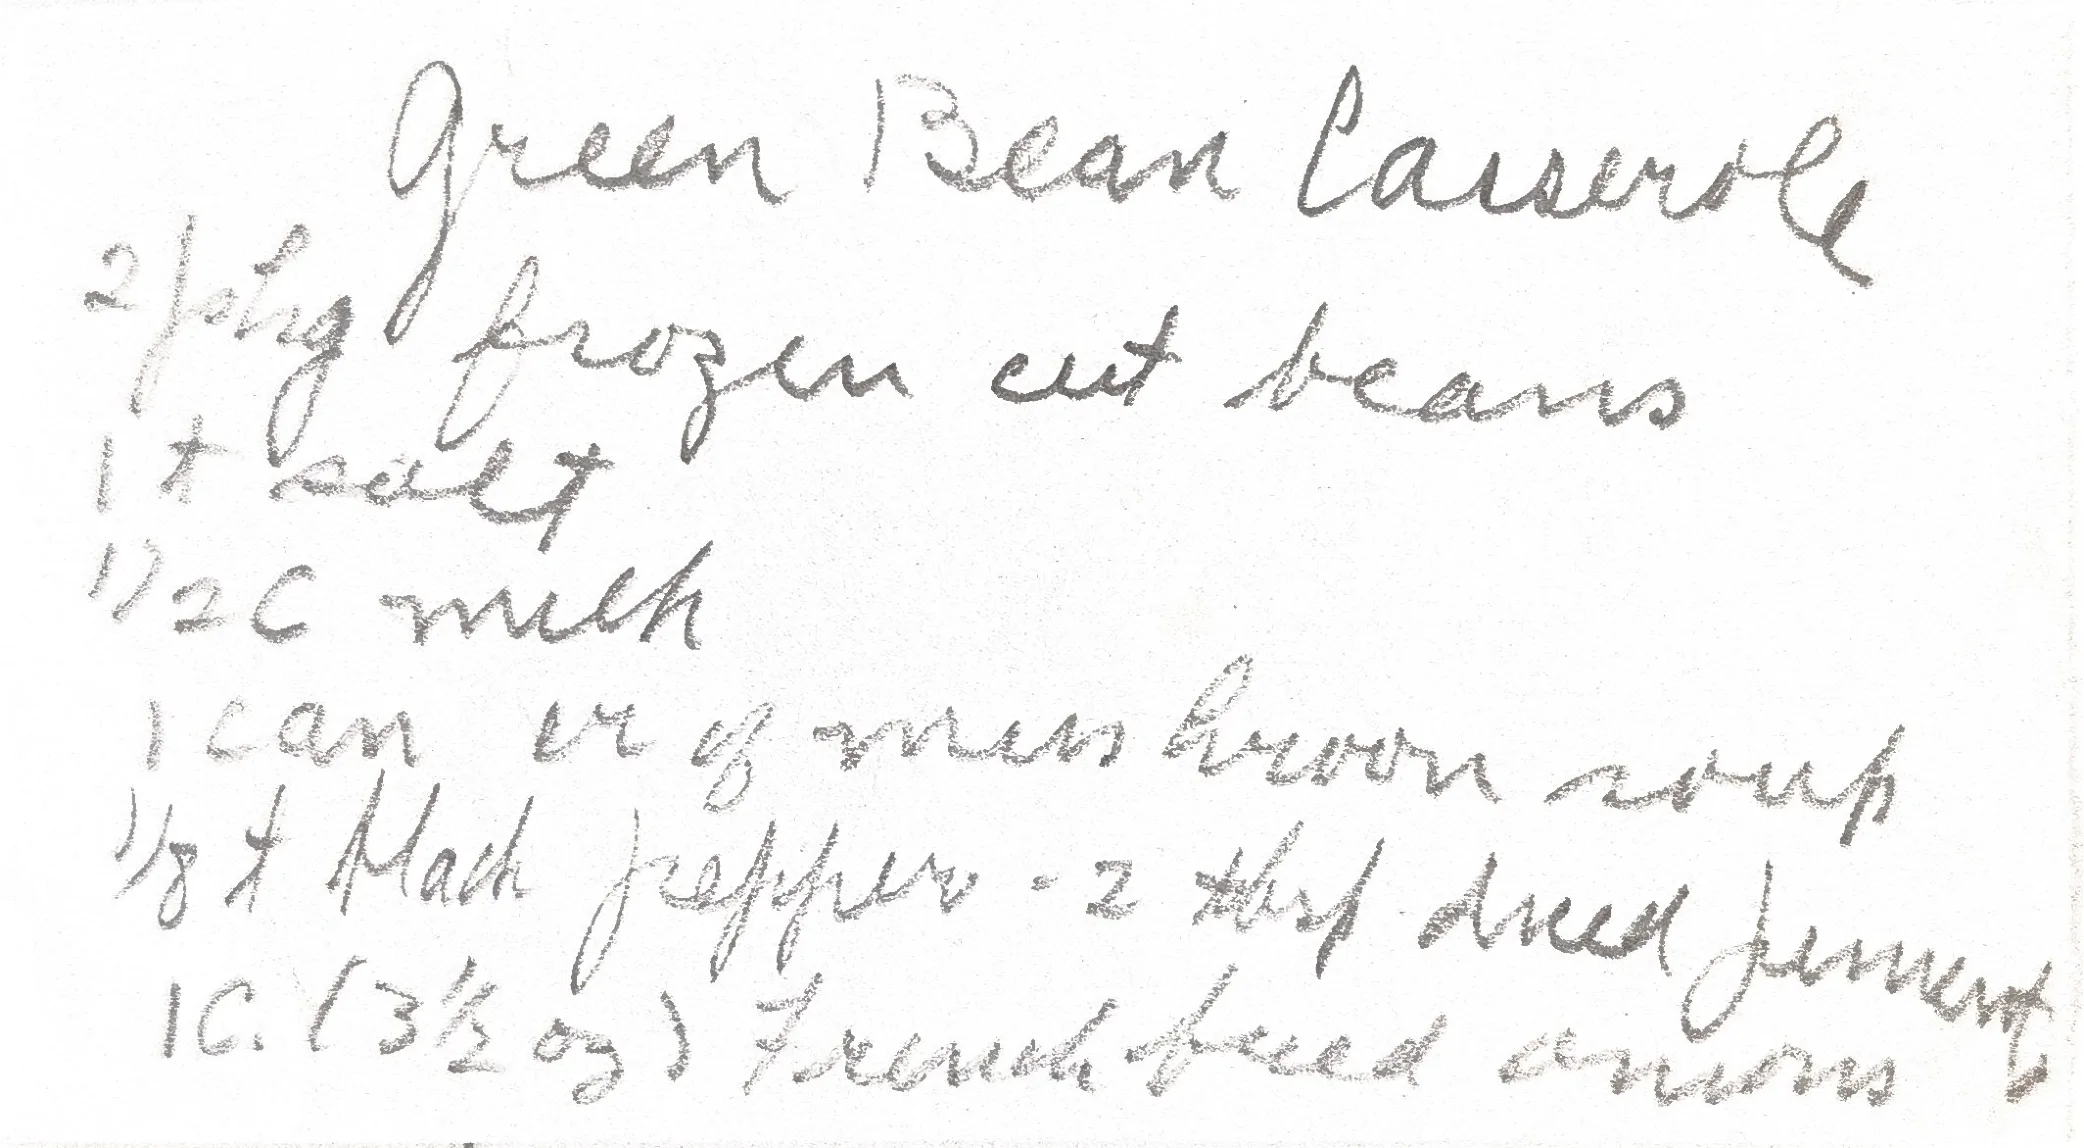 Green Bean Casserole
2 pkg frozen cut beans
1 t salt
1/2 C milk
1 can cr of mushroom soup
1/8 t black pepper - 2 tbsp diced pimento
1 C. (3 1/2 oz) French fried onions